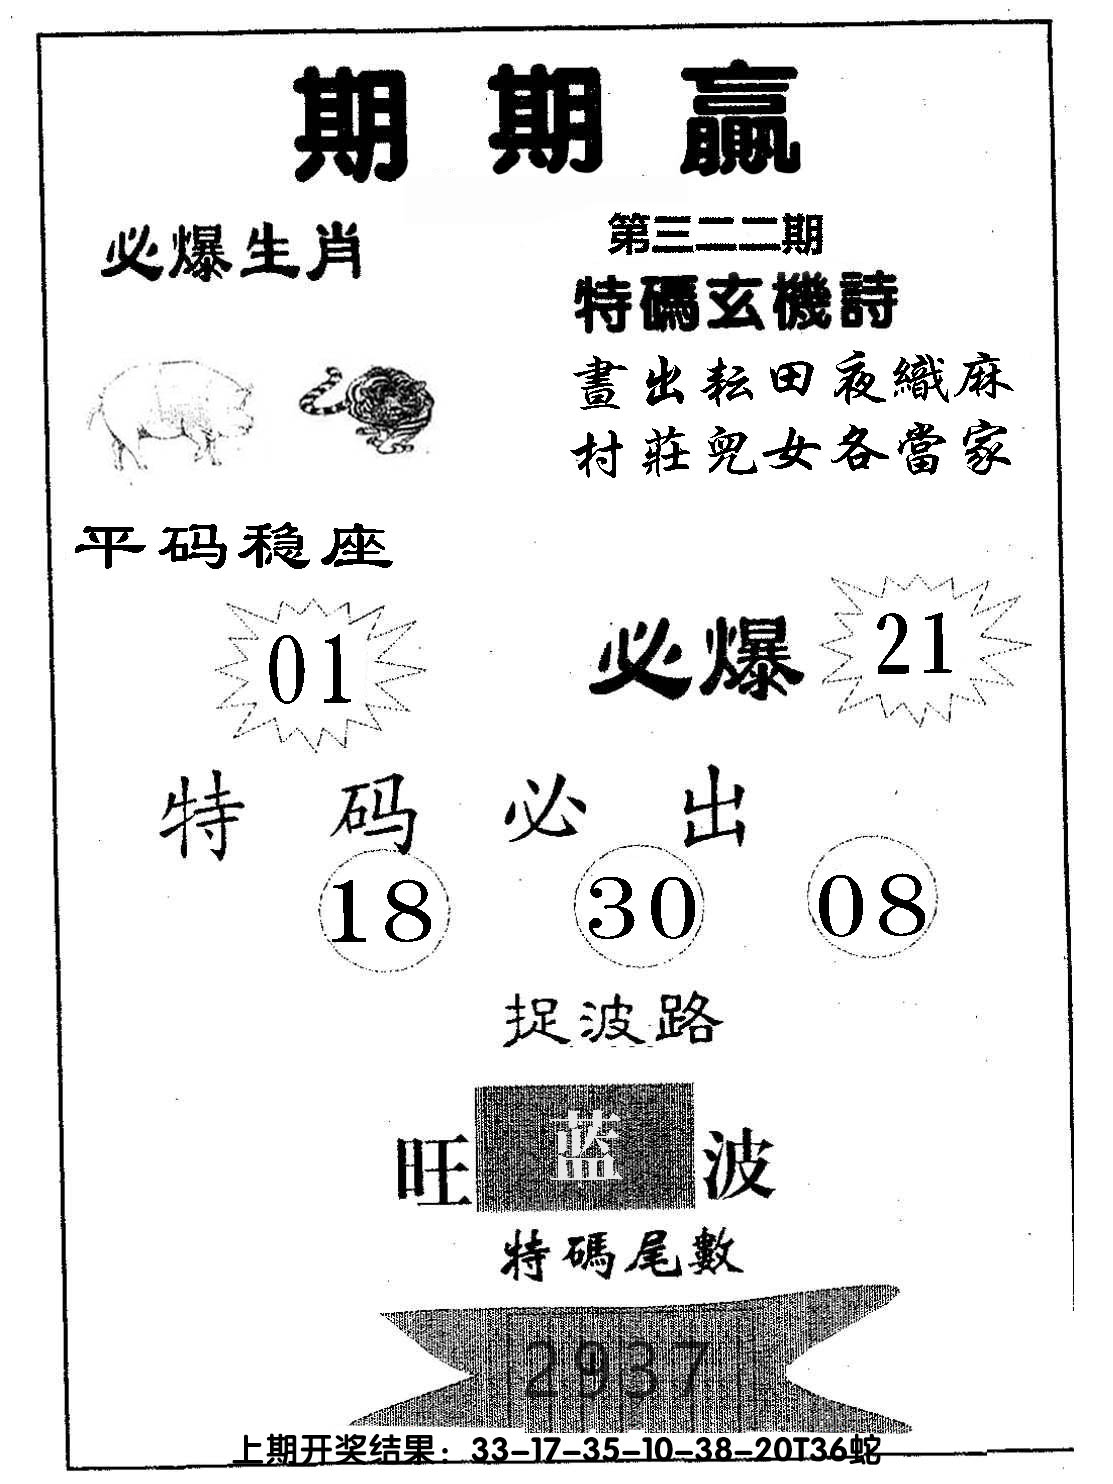 期期赢
必爆生肖
第三二二期
特碼玄機詩
晝出耘田夜織麻
村莊兒女各當家
平码稳座
01
必爆 21
特码必出
18 30 08
捉波路
旺 蓝 波
特碼尾數
2937
上期开奖结果：33-17-35-10-38-20T36蛇